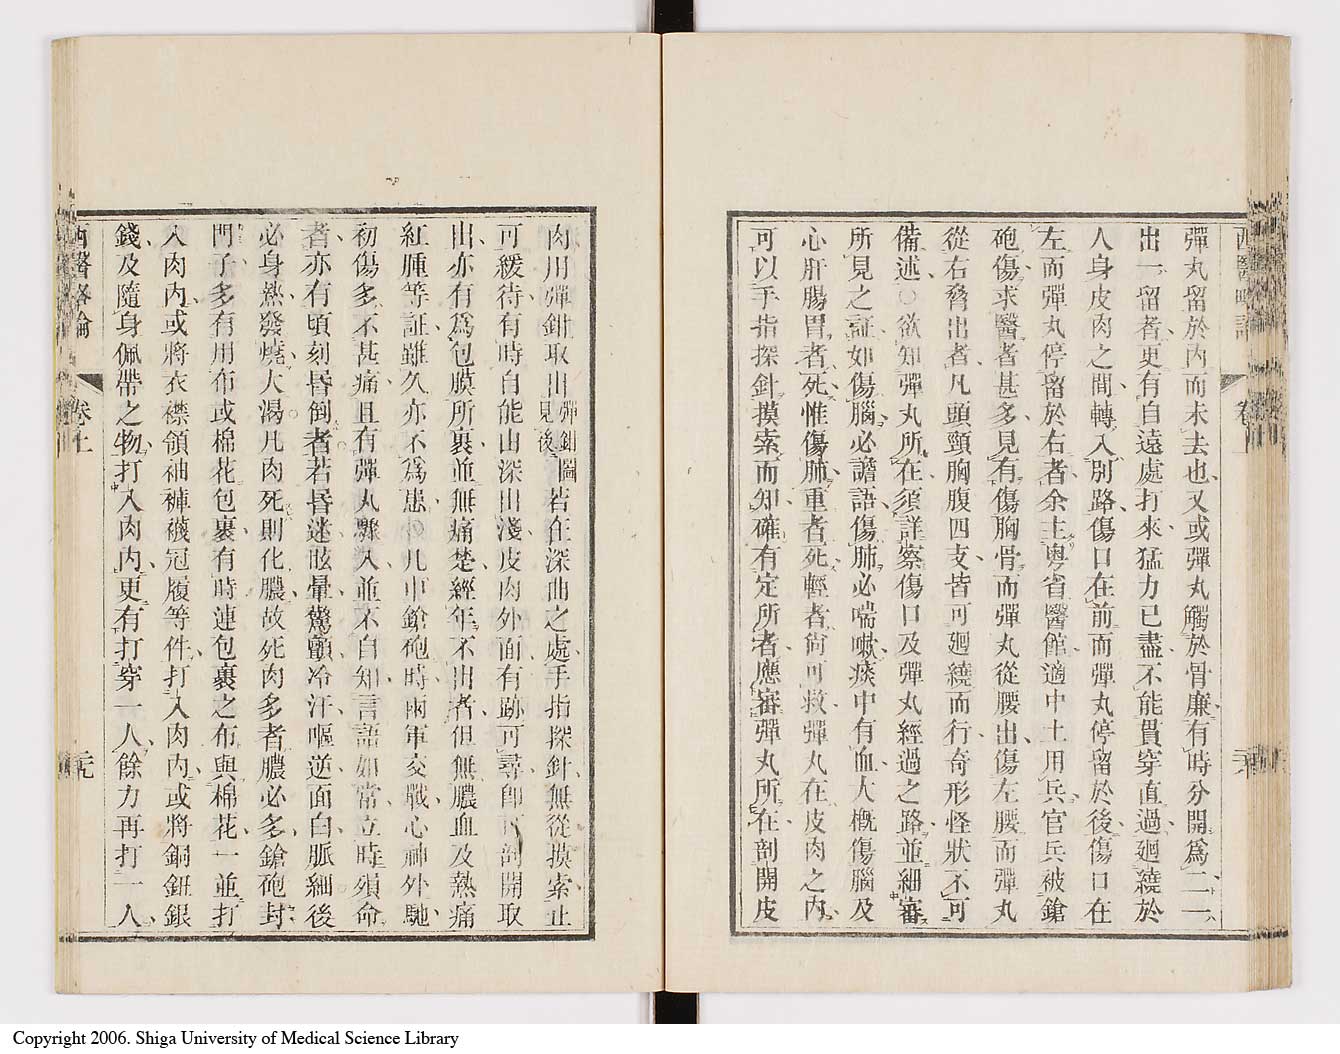 彈丸留於內而未去也又或彈丸觸於骨廉有時分開為二一
出一留者更有自遠處打來猛力已盡不能貫穿直過廻繞於
人身皮肉之間轉入別路傷口在前而彈丸停留於後傷口在
左而彈丸停留於右者余主粵省醫館適中土用兵官兵被鎗
砲傷求醫者甚多見有傷胸骨而彈丸從腰出傷左腰而彈丸
從右脅出者凡頭頸胸腹四支皆可廻繞而行奇形怪狀不可
備述○欲知彈丸所在須詳察傷口及彈丸經過之路並細審
所見之証如傷腦必譫語傷肺必喘嗽痰中有血大概傷腦及
心肝腸胃者死惟傷肺重者死輕者尙可救彈丸在皮肉之內
可以手指探針摸索而知確有定所者應審彈丸所在剖開皮
肉用彈鉗取出彈鉗圖見後若在深曲之處手指探針無從摸索止
可緩待有時自能由深出淺皮肉外面有跡可尋卽可剖開取
出亦有為包膜所裹並無痛楚經年不出者但無膿血及熱痛
紅腫等証雖久亦不為患○凡中鎗砲時兩軍交戰心神外馳
初傷多不甚痛且有彈丸驟入並不自知言語如常立時殞命
者亦有頃刻昏倒者若昏迷眩暈驚顫冷汗嘔逆面白脈細後
必身熱發燒大渴凡肉死則化膿故死肉多者膿必多鎗砲封
門子多有用布或棉花包裹有時連包裹之布與棉花一並打
入肉內或將衣襟領袖褲襪冠履等件打入肉內或將銅鈕銀
錢及隨身佩帶之物打入肉內更有打穿一人餘力再打一人
西醫畧論 卷上 二九
Copyright 2006. Shiga University of Medical Science Library